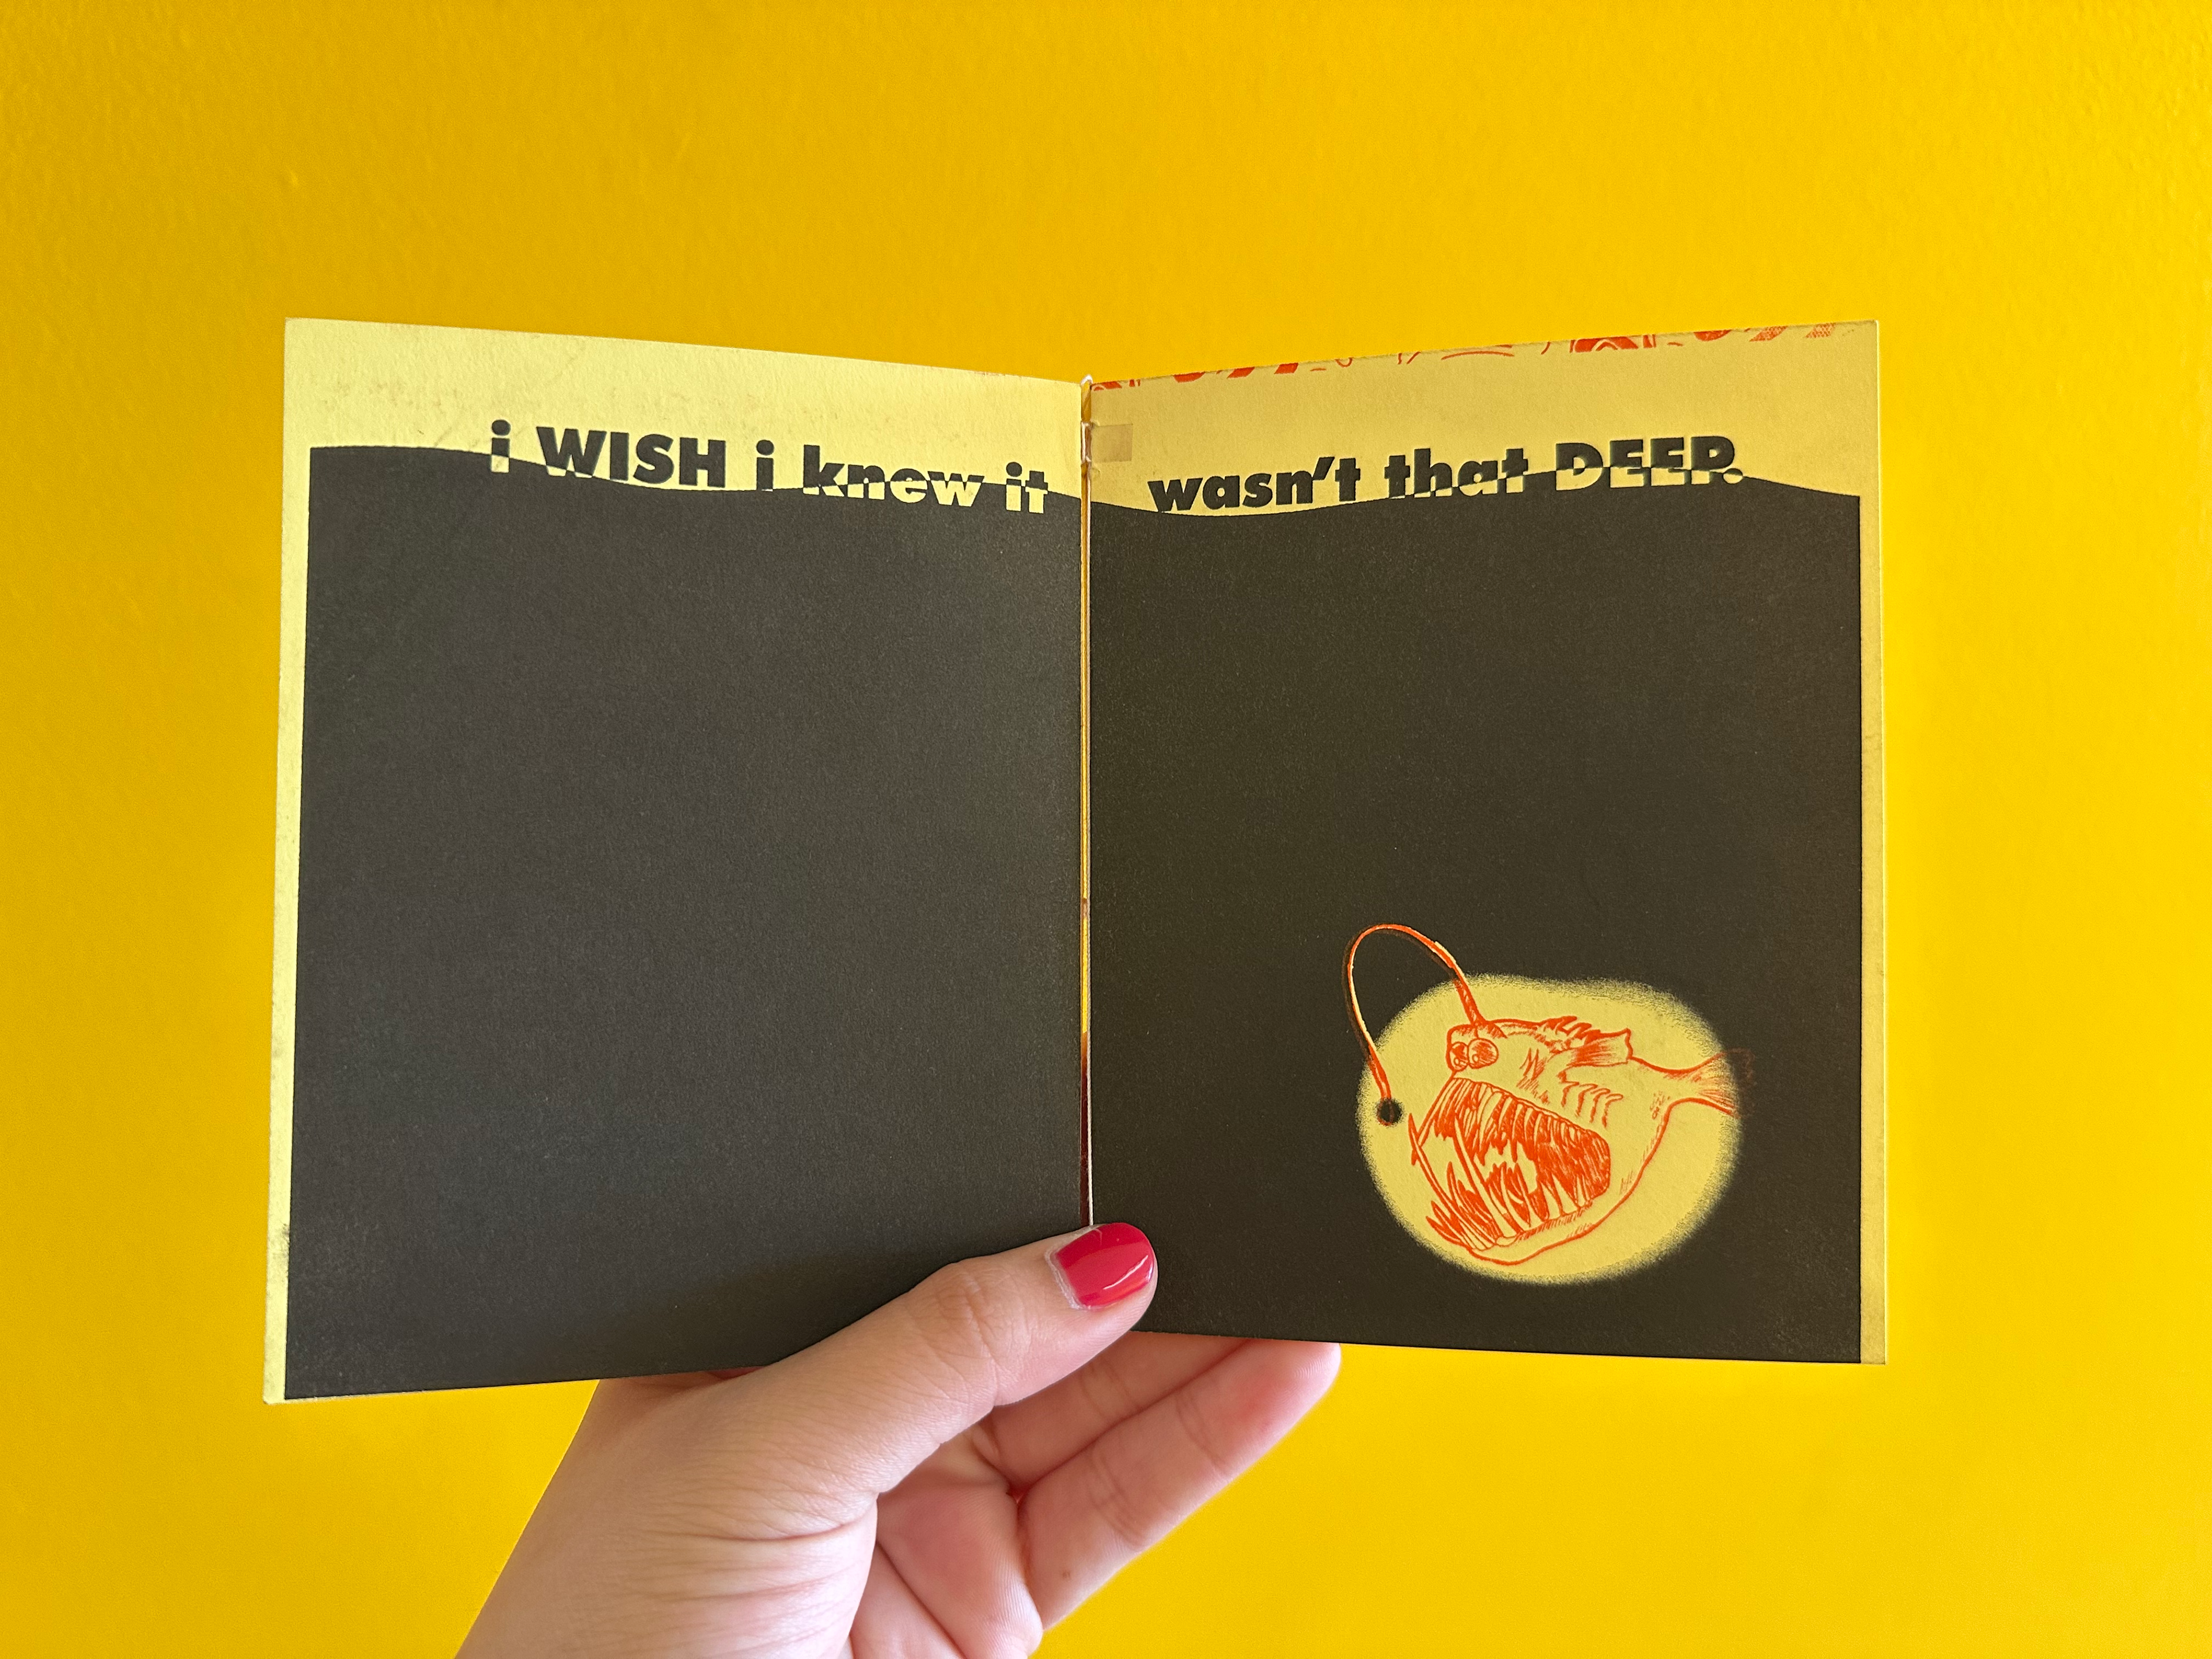 i WISH i knew it
wasn't that DEEP.